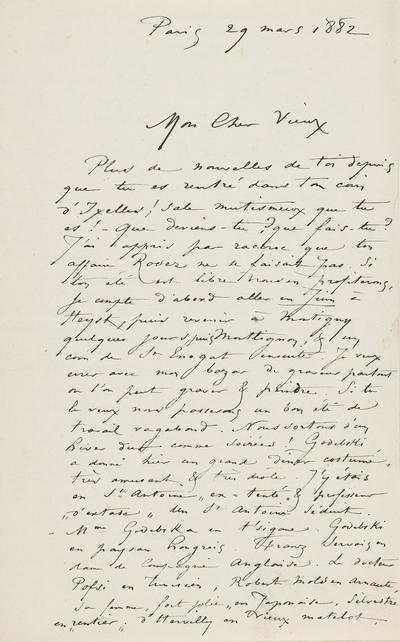 Paris 29 mars 1882
Mon Cher Vieux
Plus de nouvelles de toi depuis
que tu es rentré dans ton coin
d'Ixelles! Sale mutismeux que tu
es! - Que deviens-tu? que fais-tu?
J'ai appris par raccroc que ton
affaire Rodez ne se faisait pas. Si
ton été est libre nous en profiterons,
Je compte d'abord aller en Juin à
Heyst, puis revenir à Martigny
quelques jours, puis Monttignon, & un
coin de St Enogat ensuite. Je veux
errer avec mon bazar de graveur partout
où l'on peut graver & peindre. Si tu
le veux nous passerons un bon été de
travail vagabond. Nous sortons d'un
hiver dur comme soirées! Godebski
a donné hier un grand dîner costumé,
très amusant & très drôle. J'y étais
en St Antoine, "en-tenté" & professeur
"d'extase" un St Antoine séduit.
- Mme Godebska en tsigane. Godebski
en paysan hongrois. Franz Servais en
dame de Compagnie Anglaise. Le docteur
en Tunisien, Robert en
sa femme, fort jolie, en Japonaise, Silvestre
en "rentier", d'Hervilly en vieux matelot,